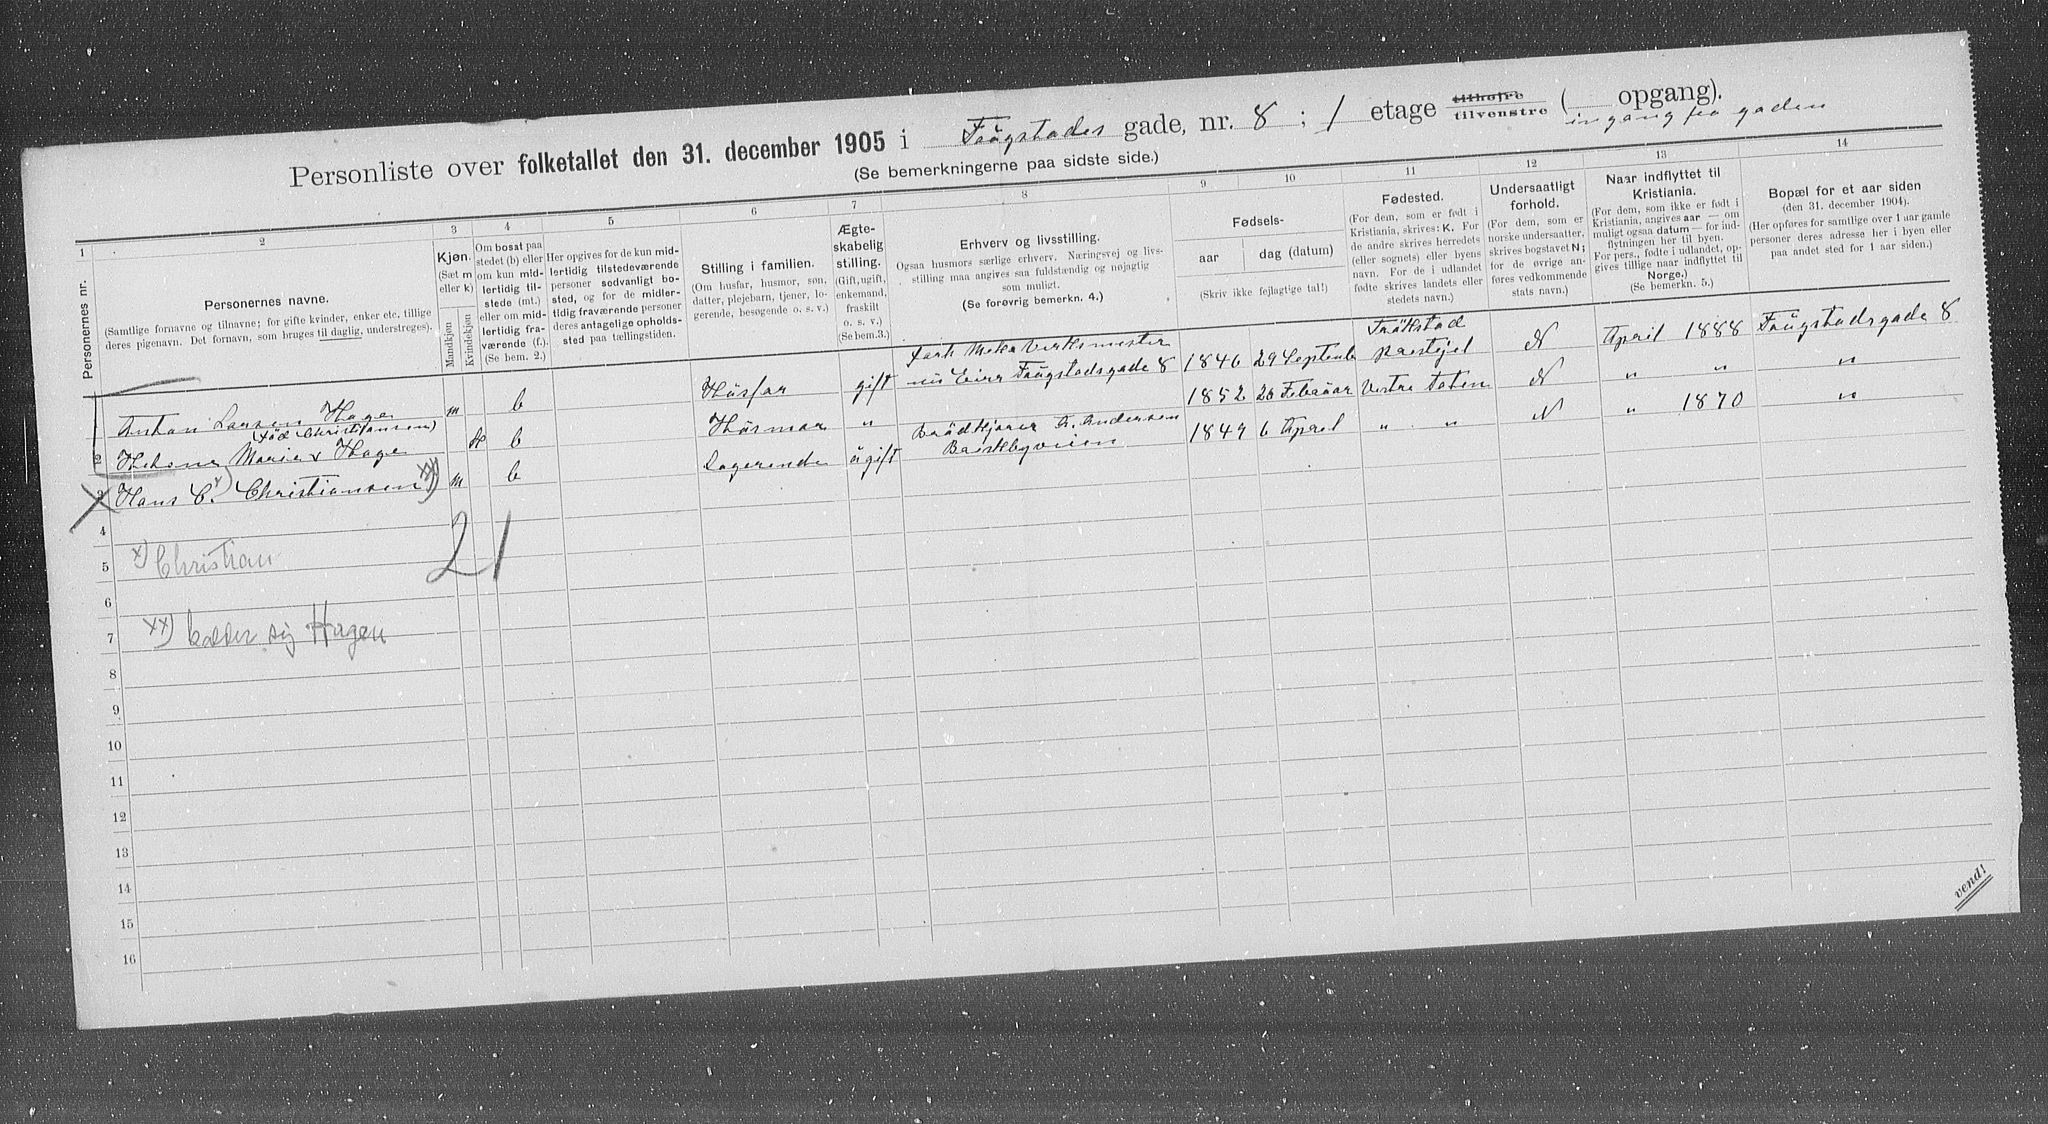 Personliste over folketallet den 31. december 1905 i Frügstades gade, nr. 8 ; 1 etage tilhøjre tilvenstre ( opgang).
ingang fra gaden
(Se bemerkningerne paa sidste side.)
1 2 3 4 5 6 7 8 9 10 11 12 13 14
Personernes nr.
Personernes navne.
(Samtlige fornavne og tilnavne; for gifte kvinder, enker etc. tillige
deres pigenavn. Det fornavn, som bruges til daglig, understreges).
Kjøn.
(Sæt m
eller k)
Mandkjøn
Kvindekjøn
Om bosat paa
stedet (b) eller
om kun mid-
lertidig til-
stede (mt.)
eller om mid-
lertidig fra-
værende (f.).
(Se bem. 2.)
Her opgives for de kun mid-
lertidig tilstedeværende
personer sedvanligt bo-
sted, og for de midler-
tidig fraværende personer
deres antagelige opholds-
sted paa tællingstiden.
Stilling i familien.
(Om husfar, husmor, søn,
datter, plejebarn, tjener, lo-
gerende, besøgende o. s. v.)
Ægte-
skabelig
stilling.
(Gift, ugift,
enkemand,
fraskilt
o. s. v.)
(Se bem.3.)
Erhverv og livsstilling.
Ogsaa husmors særlige erhverv. Næringsvej og livs-
stilling maa angives saa fuldstændig og nøjagtig
som muligt.
(Se forøvrig bemerkn. 4.)
Fødsels-
aar
dag (datum)
(Skriv ikke fejlagtige tal!)
Fødested.
(For dem, som er født i
Kristiania, skrives: K. For
de andre skrives herredets
(eller sognets) eller byens
navn. For de i udlandet
fødte skrives landets eller
stedets navn.)
Undersaatligt
forhold.
(For dem, som er
norske undersaatter,
skrives bogstavet N;
for de øvrige an-
føres vedkommende
stats navn.)
Naar indflyttet til
Kristiania.
(For dem, som ikke er født i
Kristiania, angives aar — om
muligt ogsaa datum — for ind-
flytningen her til byen.
For pers., fødte i udlandet, op-
gives tillige naar indflyttet til
Norge.)
(Se bemerkn. 5.)
Bopæl for et aar siden
(den 31. december 1904).
(Her opføres for samtlige over 1 aar gamle
personer deres adresse her i byen eller
paa andet sted for 1 aar siden.)
Anton Larsen Hage m b Husfar gift 1846 29 Septemb Tröttstad præstejel N April 1888 Frügstadsgade 8
Meka Verksmester
Eier Frügstadsgade 8
(född Christiansen)
2 Helene Marie Hage k b Husmor " 1852 26 Februar Vestre Toten N " " "
3 Hans C. x) Christiansen xx) m b Logerende ugift Brödkjører A. Andersen 1849 6 April " " N " 1870 "
4
x) Christian
21
5
6
xx) kalder sig Hagen
7
8
9
10
11
12
13
14
15
16
vend!